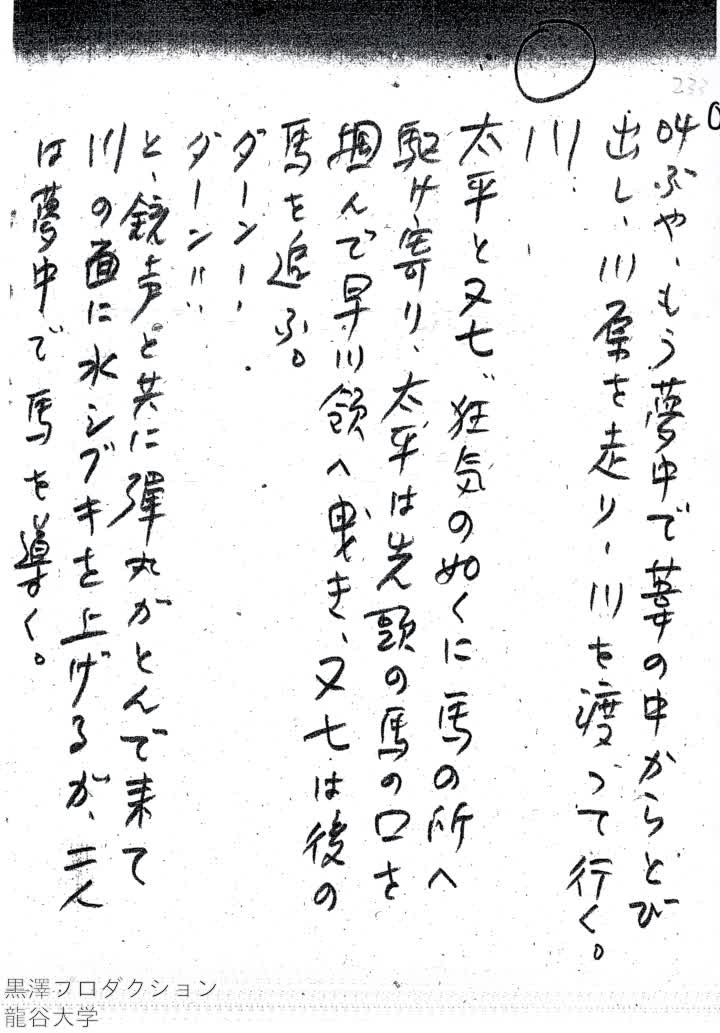 233
叫ぶや、もう夢中で葦の中からとび
出し、川原を走り、川を渡って行く。
川
太平と又七、狂気の如くに馬の所へ
駆け寄り、太平は先頭の馬の口を
掴んで早川領へ曳き、又七は後の
馬を追ふ。
ダーン!
ダーン!!
と、銃声と共に弾丸がとんで来て
川の面に水シブキを上げるが、二人
は夢中で馬を導く。
黒澤プロダクション
龍谷大学